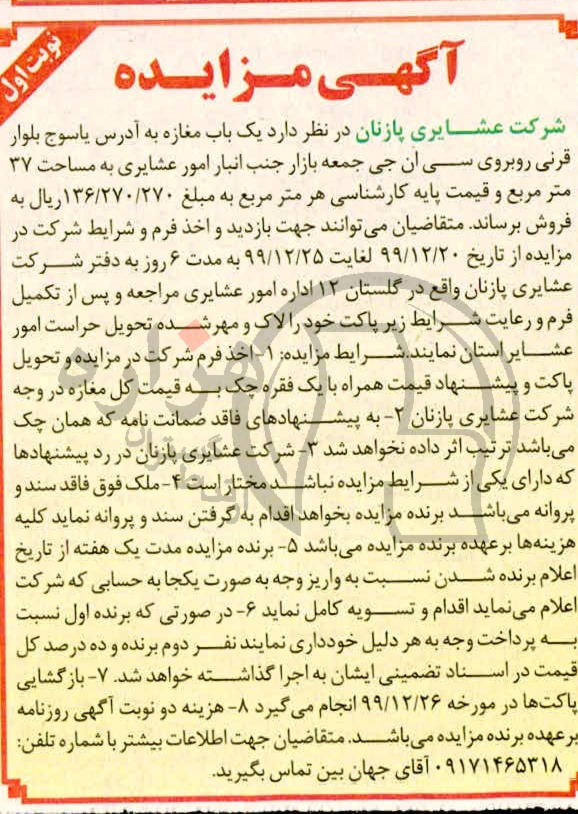 نوبت اول
آگهی مزایده
شرکت عشایری پازنان در نظر دارد یک باب مغازه به آدرس یاسوج بلوار
قرنی روبروی سی ان جی جمعه بازار جنب انبار امور عشایری به مساحت ۳۷
متر مربع و قیمت پایه کارشناسی هر متر مربع به مبلغ ۱۳۶/۲۷۰/۲۷۰ریال به
فروش برساند. متقاضیان می‌توانند جهت بازدید و اخذ فرم و شرایط شرکت در
مزایده از تاریخ ۹۹/۱۲/۲۰ لغایت ۹۹/۱۲/۲۵ به مدت ۶ روز به دفتر شرکت
عشایری پازنان واقع در گلستان ۱۲ اداره امور عشایری مراجعه و پس از تکمیل
فرم و رعایت شرایط زیر پاکت خود را لاک و مهر شده تحویل حراست امور
عشایر استان نمایند.شرایط مزایده: ۱- اخذ فرم شرکت در مزایده و تحویل
پاکت و پیشنهاد قیمت همراه با یک فقره چک به قیمت کل مغازه در وجه
شرکت عشایری پازنان ۲- به پیشنهادهای فاقد ضمانت نامه که همان چک
می‌باشد ترتیب اثر داده نخواهد شد ۳- شرکت عشایری پازنان در رد پیشنهادها
که دارای یکی از شرایط مزایده نباشد مختار است ۴- ملک فوق فاقد سند و
پروانه می‌باشد برنده مزایده بخواهد اقدام به گرفتن سند و پروانه نماید کلیه
هزینه‌ها برعهده برنده مزایده می‌باشد ۵- برنده مزایده مدت یک هفته از تاریخ
اعلام برنده شدن نسبت به واریز وجه به صورت یکجا به حسابی که شرکت
اعلام می‌نماید اقدام و تسویه کامل نماید ۶- در صورتی که برنده اول نسبت
به پرداخت وجه به هر دلیل خودداری نمایند نفر دوم برنده و ده درصد کل
قیمت در اسناد تضمینی ایشان به اجرا گذاشته خواهد شد. ۷- بازگشایی
پاکت‌ها در مورخه ۹۹/۱۲/۲۶ انجام می‌گیرد ۸- هزینه دو نوبت آگهی روزنامه
برعهده برنده مزایده می‌باشد. متقاضیان جهت اطلاعات بیشتر با شماره تلفن:
۰۹۱۷۱۴۶۵۳۱۸ آقای جهان بین تماس بگیرید.